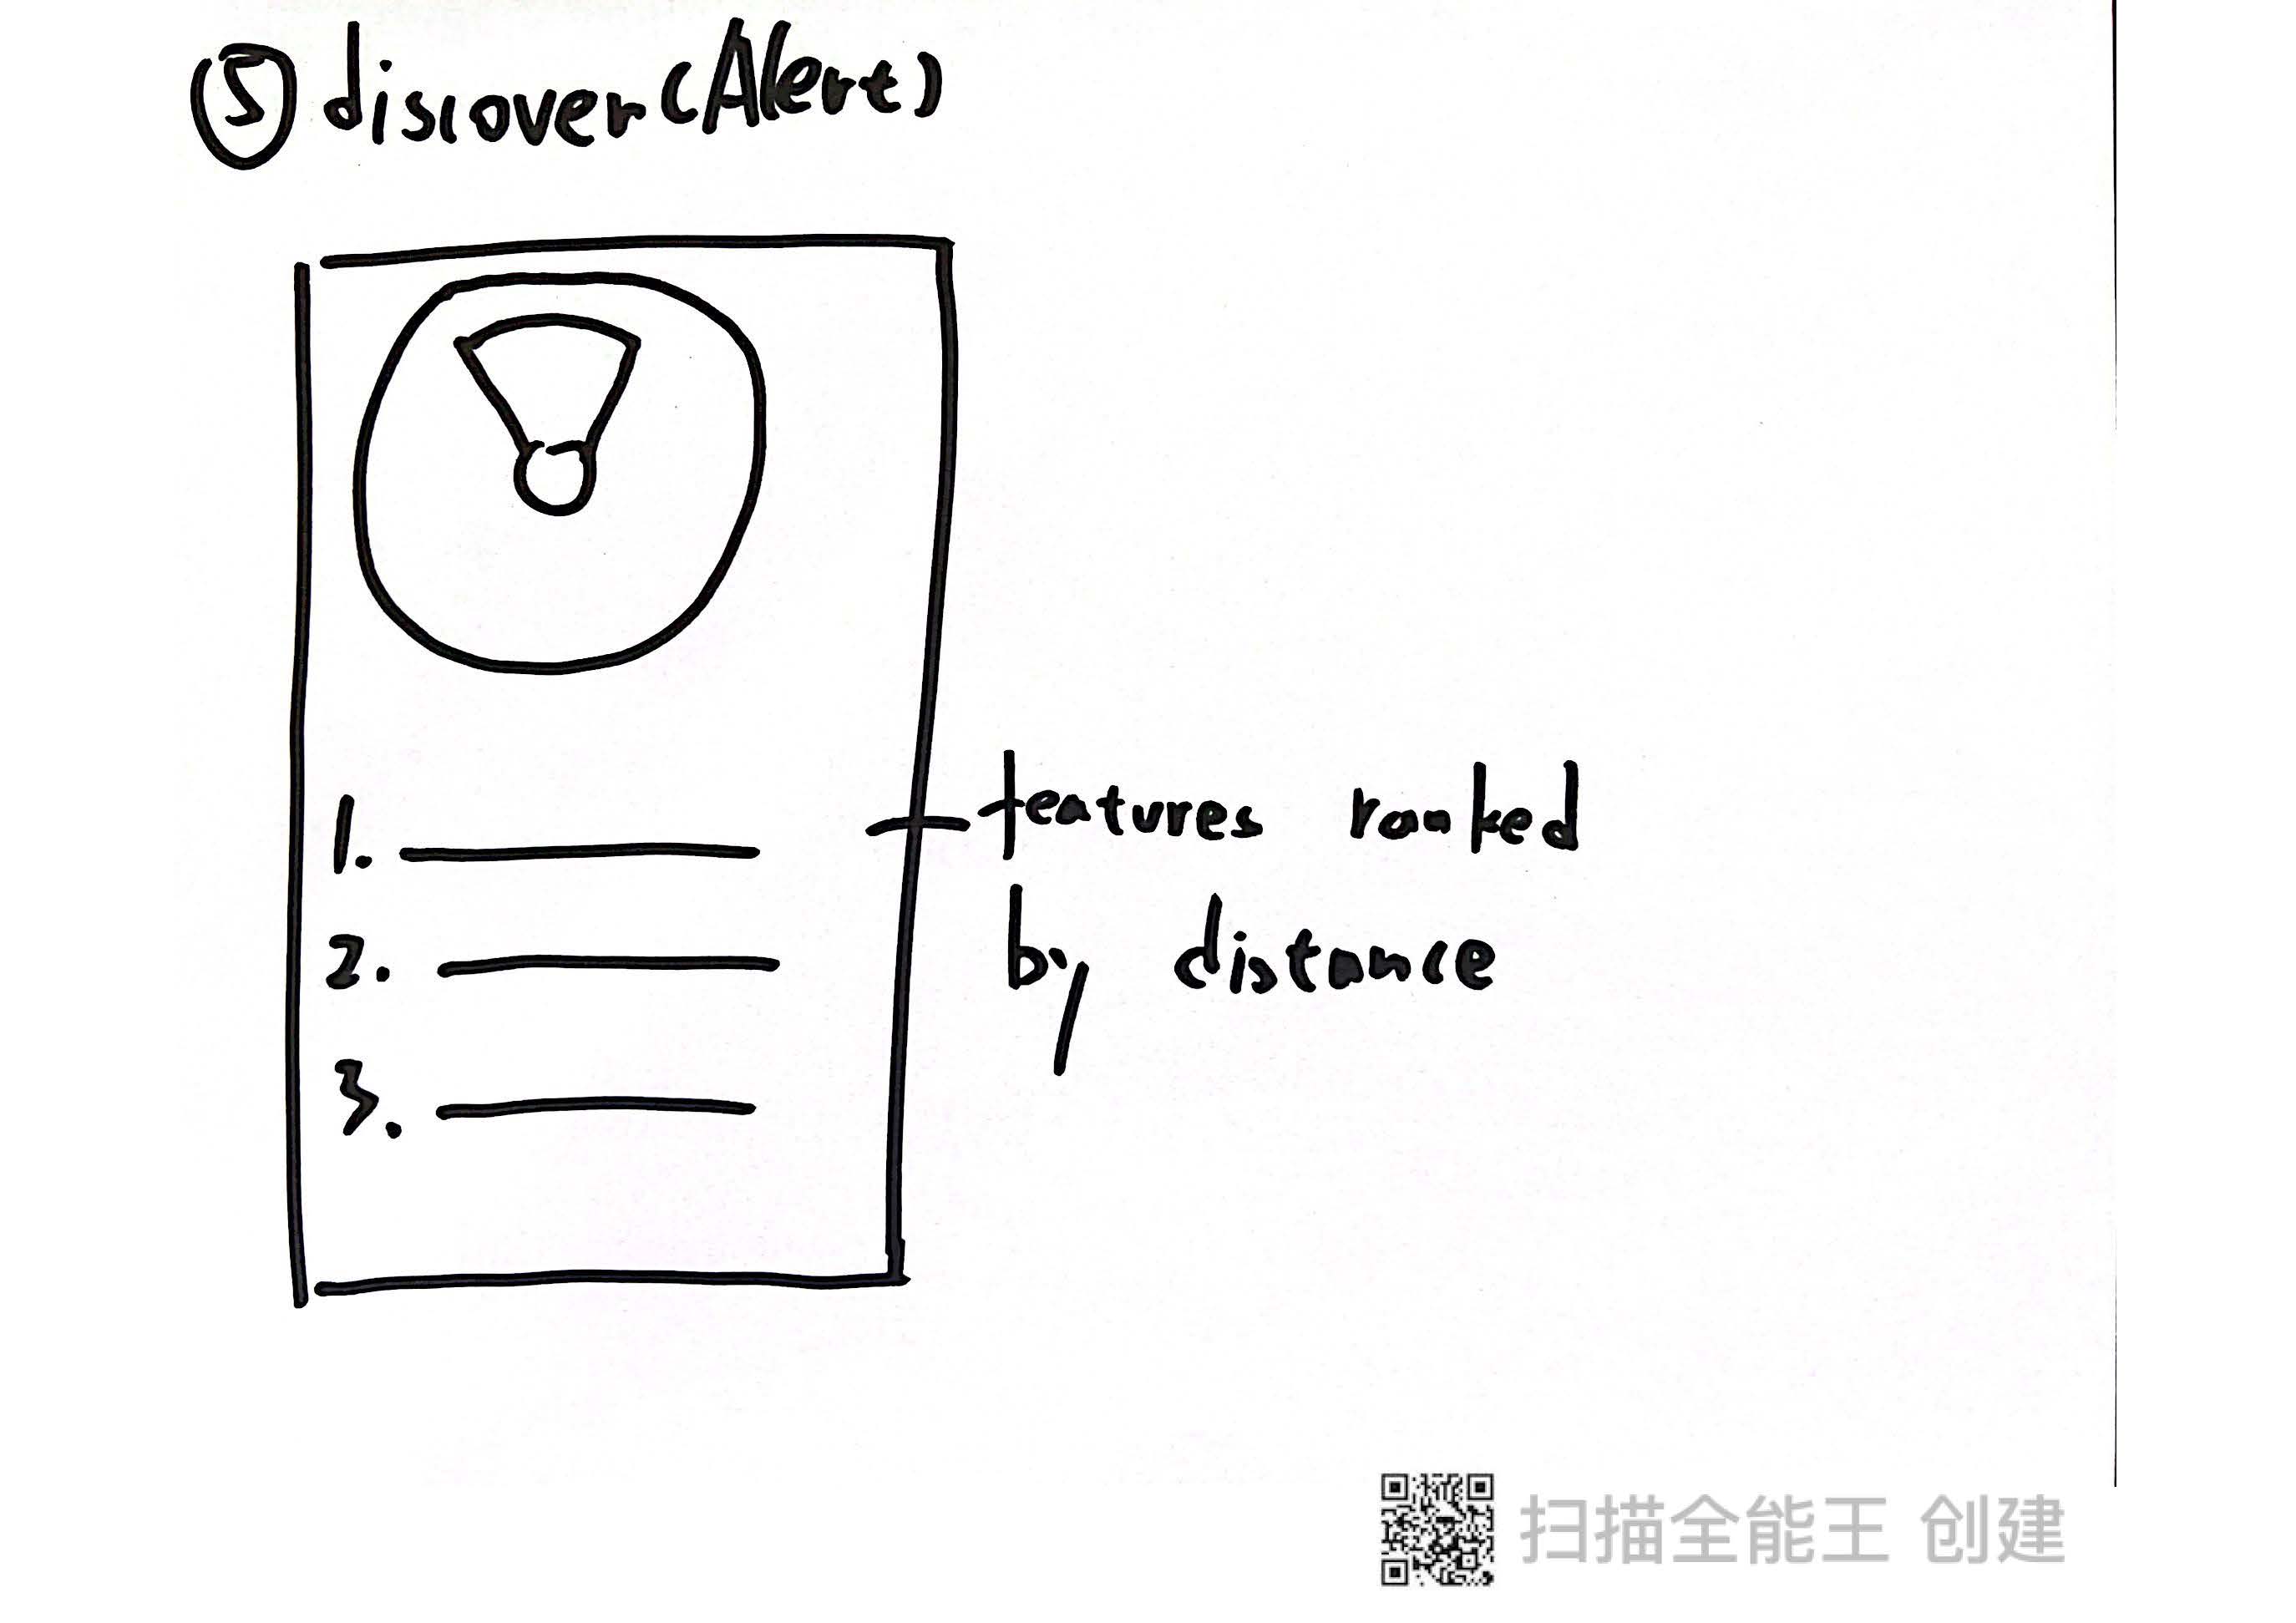 ⑤ discover (Alert)
1.
features ranked
2.
by distance
3.
扫描全能王 创建